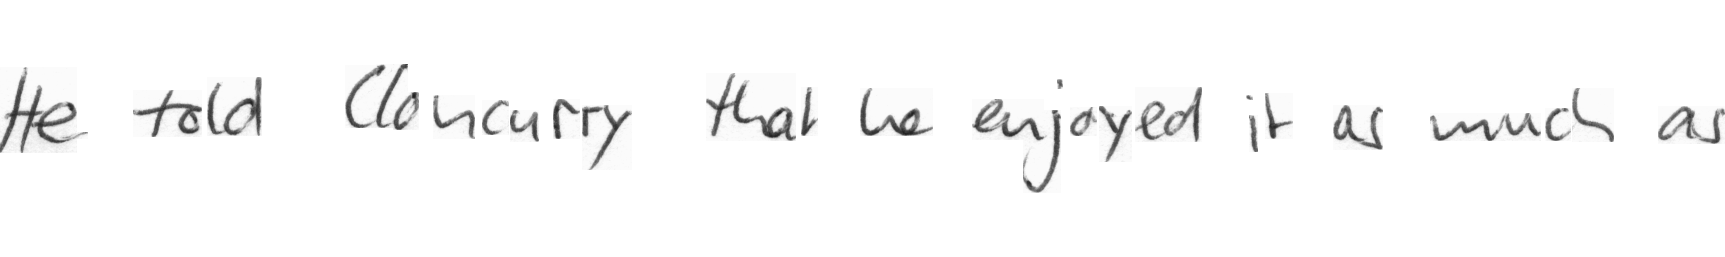 He told Cloncurry that he enjoyed it as much as